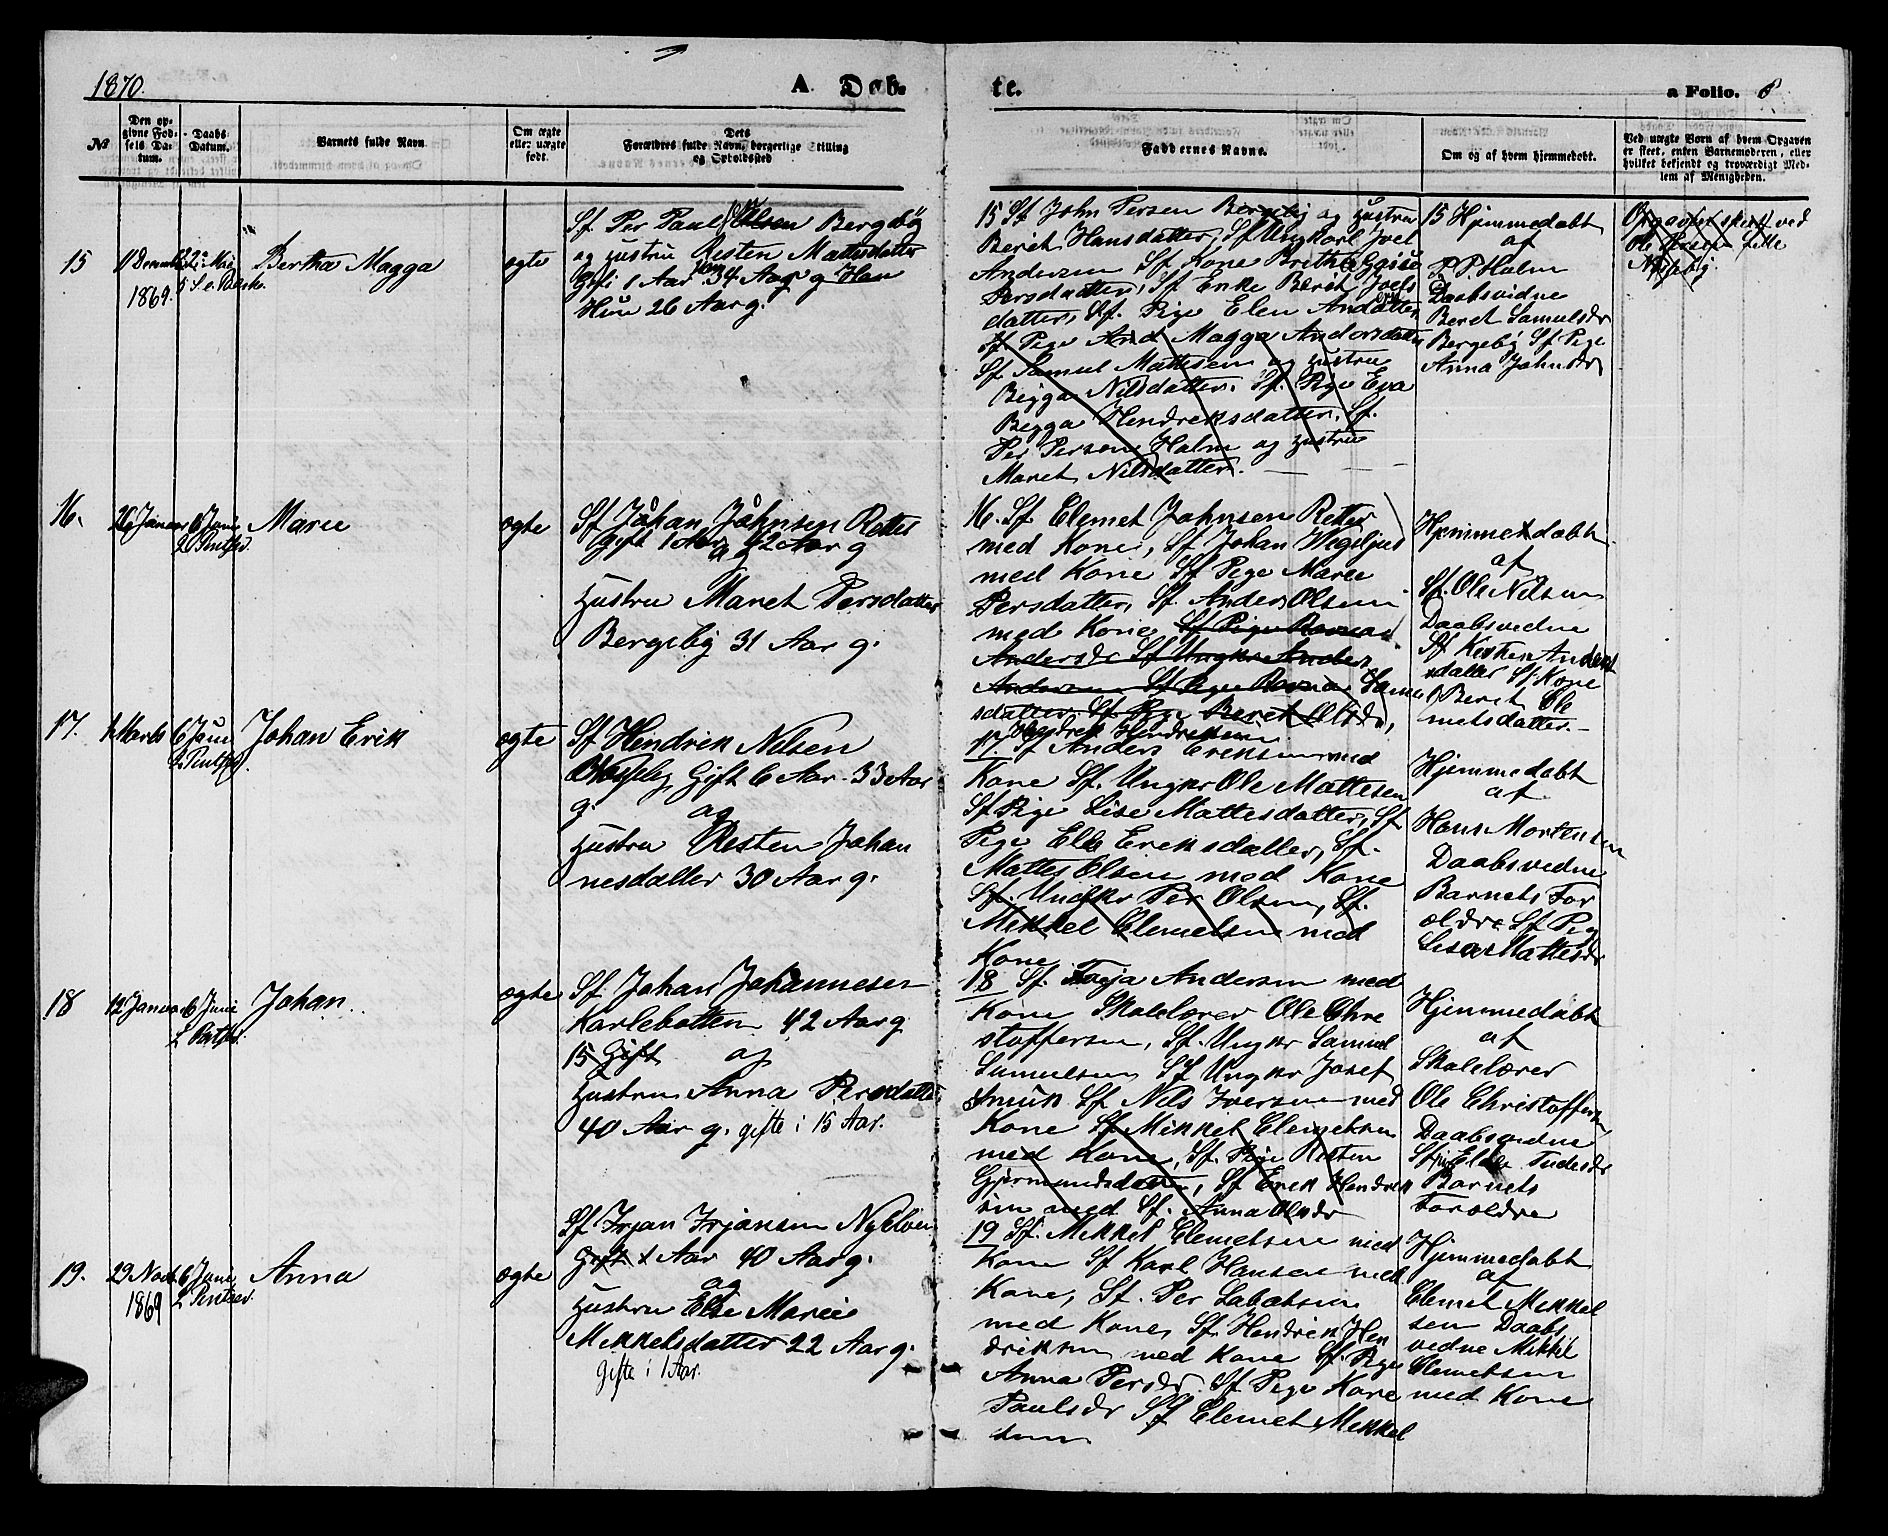 1870.
A. Døb-
te.
a Folio. 8
No
Den op-
givne Fød-
sels Da-
tum.
Daabs
Datum.
Barnets fulde Navn
Om ægte
eller uægte
født.
Dets
Forældres fulde Navn, borgerlige Stilling
og Opholdssted
Faddernes Navne.
Om og af hvem hjemmedøbt.
Ved uægte Børn af hvem Opgaven
er skeet, enten Barnemoderen, eller
hvilket bekjendt og troværdigt Med-
lem af Menigheden.
15
1869.
Bertha Magga
ægte
Sf. Per Paul Olsen Bergeby
og Hustru Kesten Mattisdatter
Gift 1 Aar 34 Aar g Han
Hun 26 Aar g.
15 Sf John Persen Bergeby og Hustru
Beret Hansdatter, Sf Ungkarl Joel
Andersen Sf Kone Britha Gaise
Persdatter, Sf Enke Berit Joels
datter, Sf. Pige Elen And datter
Sf Pige And Magga Andersdatter
Sf Samul Mattesen og Hustru
Bigga Nilsdatter. Sf. Pige Eva
Begga Hendreksdatter. Sf.
Per Persen Halm og Hustru
Maret Nilsdatter.
15 Hjemmedøbt
af
P. P. Halm
Daabsvidne
Beret Samulsdr
Bergeby Sf Pige
Anna Johnsdr
Opgaven skeet ved
Ole
Nyseby.
16.
26 Januar
6 Juni
2 Pentsd.
Maree
ægte
Sf Johan Johnsen Retter
Gift 1 Aar 42 Aar g
og
Hustru Maret Persdatter
Bergeby 31 Aar g.
16. Sf. Clemet Johnsen Retter
med Kone, Sf Johan Wegeljus
med Kone Sf Pige Maree
Persdatter, Sf. Anders Olsen
med Kone Sf Pige Ravna
Andersdr Sf Ungkr Anders
Andersen Sf Pige Ravna Samu
sdatter. Sf Pige Beret Olsdr,
Hjemmedøbt
af
Sf. Ole Nilsen
Daabsvedne
Sf Kirsten Anders
datter Sf Kone
Beret Cle
metsdatter.
17.
1 Marts
6 Juni
2 Pentsd.
Johan Erik
ægte
Sf Hendrik Nilsen
Nyseby Gift 6 Aar 33 Aar
g. og
Hustru Kesten Johan
nesdatter 30 Aar g.
Hendrek Hendreksen
17 Sf Anders Ereksen med
Kone Sf. Ungkr Ole Mattesen
Sf Pige Lise Mattesdatter, Sf
Pige Ele Ereksdatter, Sf.
Mattes Olsen med Kone
Sf. Ungkr Per Olsen, Sf.
Mekkel Clemetsen med
Kone
Hjemmedøbt
af
Hans Mortensen
Daabsvedne
Barnets For
ældre Sf Pig
Lisa Mattesdr
18
12 Januar
6 Juni
2 Pentsd.
Johan.
ægte
Sf. Johan Johannesen
Karlebotten 42 Aar g
15 Gift og
Hustru Anna Persdatter
40 Aar g. gifte i 15 Aar.
18 Sf. Andersen med
Kone Skolelærer Ole Chre
stoffersen, Sf. Ungkr Samuel
Samulsen Sf Ungkr Josef
Smuk Sf Nels Iversen med
Kone Sf Mikkel Clemetsen
med Kone, Sf. Pige Kesten
Gjermundsdatter, Sf Erek Hendrek
sen med Sf. Anna Olsdr
Hjemmedøbt
af
Skolelærer
Ole Christoffersen
Daabsvedne
Barnets
Forældre
19.
29 Novb.
1869
6 Juni
2 Pentsd.
Anna
ægte
Sf Irjan Irjansen Nyelven
Gift 1 Aar 40 Aar g.
og
Hustru Else Marie
Mekkelsdatter 22 Aar g.
gifte i 1 Aar.
19 Sf. Mekkel Clemetsen med
Kone Sf Karl Hansen med
Kone, Sf. Per Sabatsen
med Kone, Sf. Hendrik Hen
driksen med Kone Sf. Pige
Anna Persdr. Sf Pige Kare
Paulsdr Sf Clemet Mekkel
sen
Hjemmedøbt
af
Clemet Mekkel
sen Daabs
vedne Mekkel
Clemetsen
med Kone